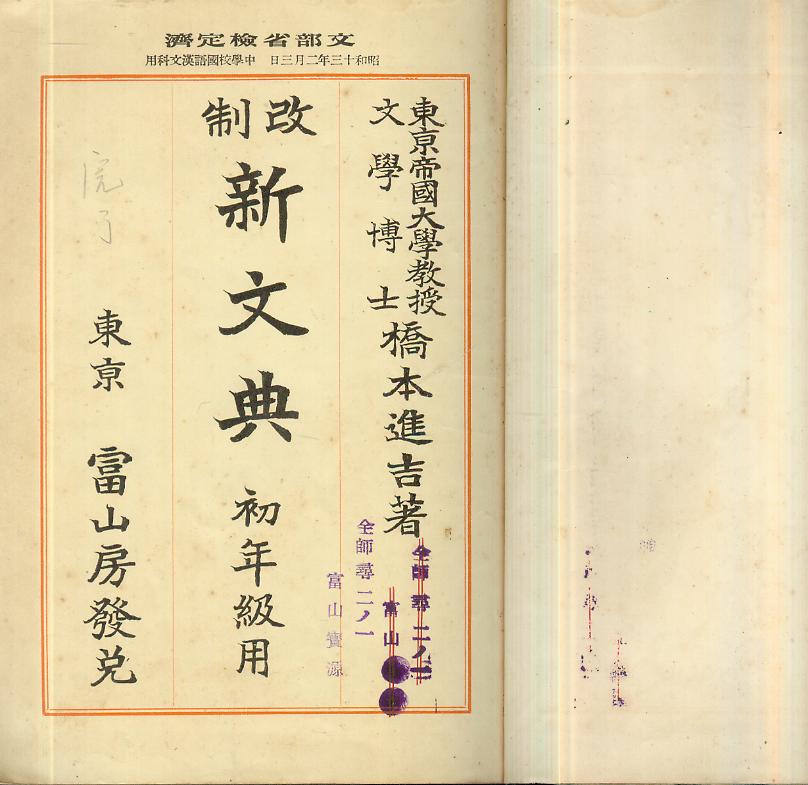 文部省檢定濟
昭和十三年二月三日 中學校國語漢文科用
東亰帝國大學教授
文學博士
橋本進吉著
改制
新文典 初年級用
東亰 富山房發兌
全師 尋 二ノ
富山
全師 尋 二ノ一
富山寶源